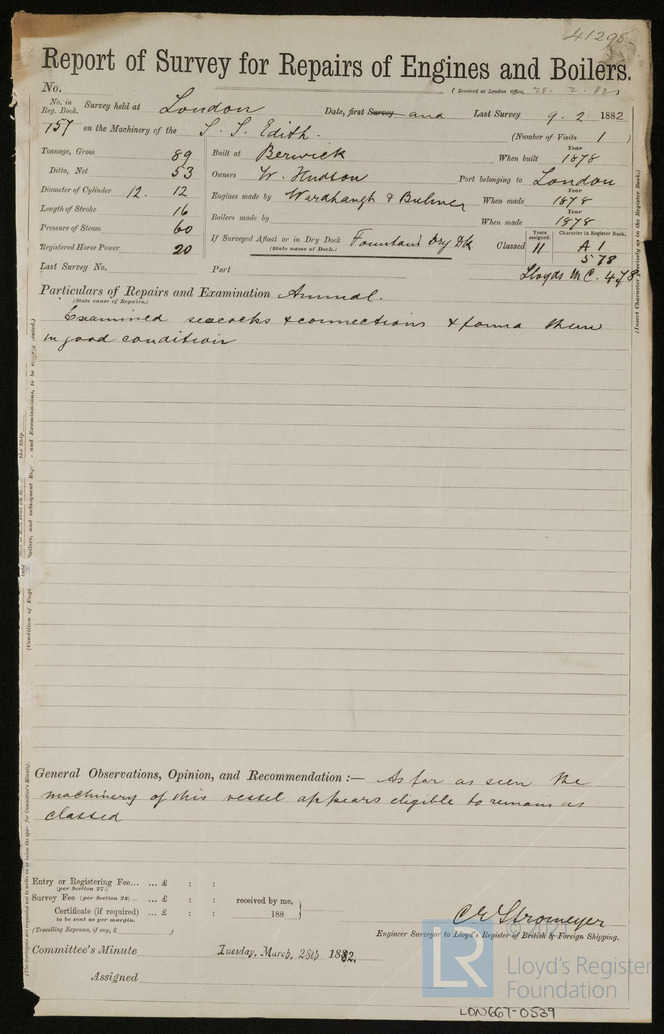 41298
Report of Survey for Repairs of Engines and Boilers.
No. (Received at London Office, 28. 2. 82)
No. in Reg. Book. Survey held at London Date, first Survey and Last Survey 9. 2 1882
157 on the Machinery of the S. S. Edith. (Number of Visits 1 )
Tonnage, Gross 89 Built at Berwick When built Year 1878
Ditto, Net 53 Owners W. Hudson Port belonging to London
Diameter of Cylinder 12. 12 Engines made by Wardhaugh & Bulmer When made Year 1878
Length of Stroke 16 Boilers made by When made Year 1878
Pressure of Steam 60
Registered Horse Power 20 If Surveyed Afloat or in Dry Dock Fountain Dry Dk (State name of Dock.) Classed Years assigned. 11 Character in Register Book. A 1
5 78
Last Survey No. Port Lloyds M C. 4 78
Particulars of Repairs and Examination Annual.
(State cause of Repairs.)
Examined seacocks & connections & found them
in good condition
General Observations, Opinion, and Recommendation :— As far as seen the
machinery of this vessel appears eligible to remain as
classed
Entry or Registering Fee... ... £ : :
(per Section 27.)
Survey Fee (per Section 28) ... ... £ : : received by me,
Certificate (if required) ... £ : : 188
to be sent as per margin.
(Travelling Expenses, if any, £ )
C E Stromeyer
Engineer Surveyor to Lloyd's Register of British & Foreign Shipping.
Committee's Minute Tuesday, March, 28th 1882.
Assigned
(Insert Character precisely as in the Register Book.)
© 2021
LR Lloyd's Register
Foundation
LON667-0539